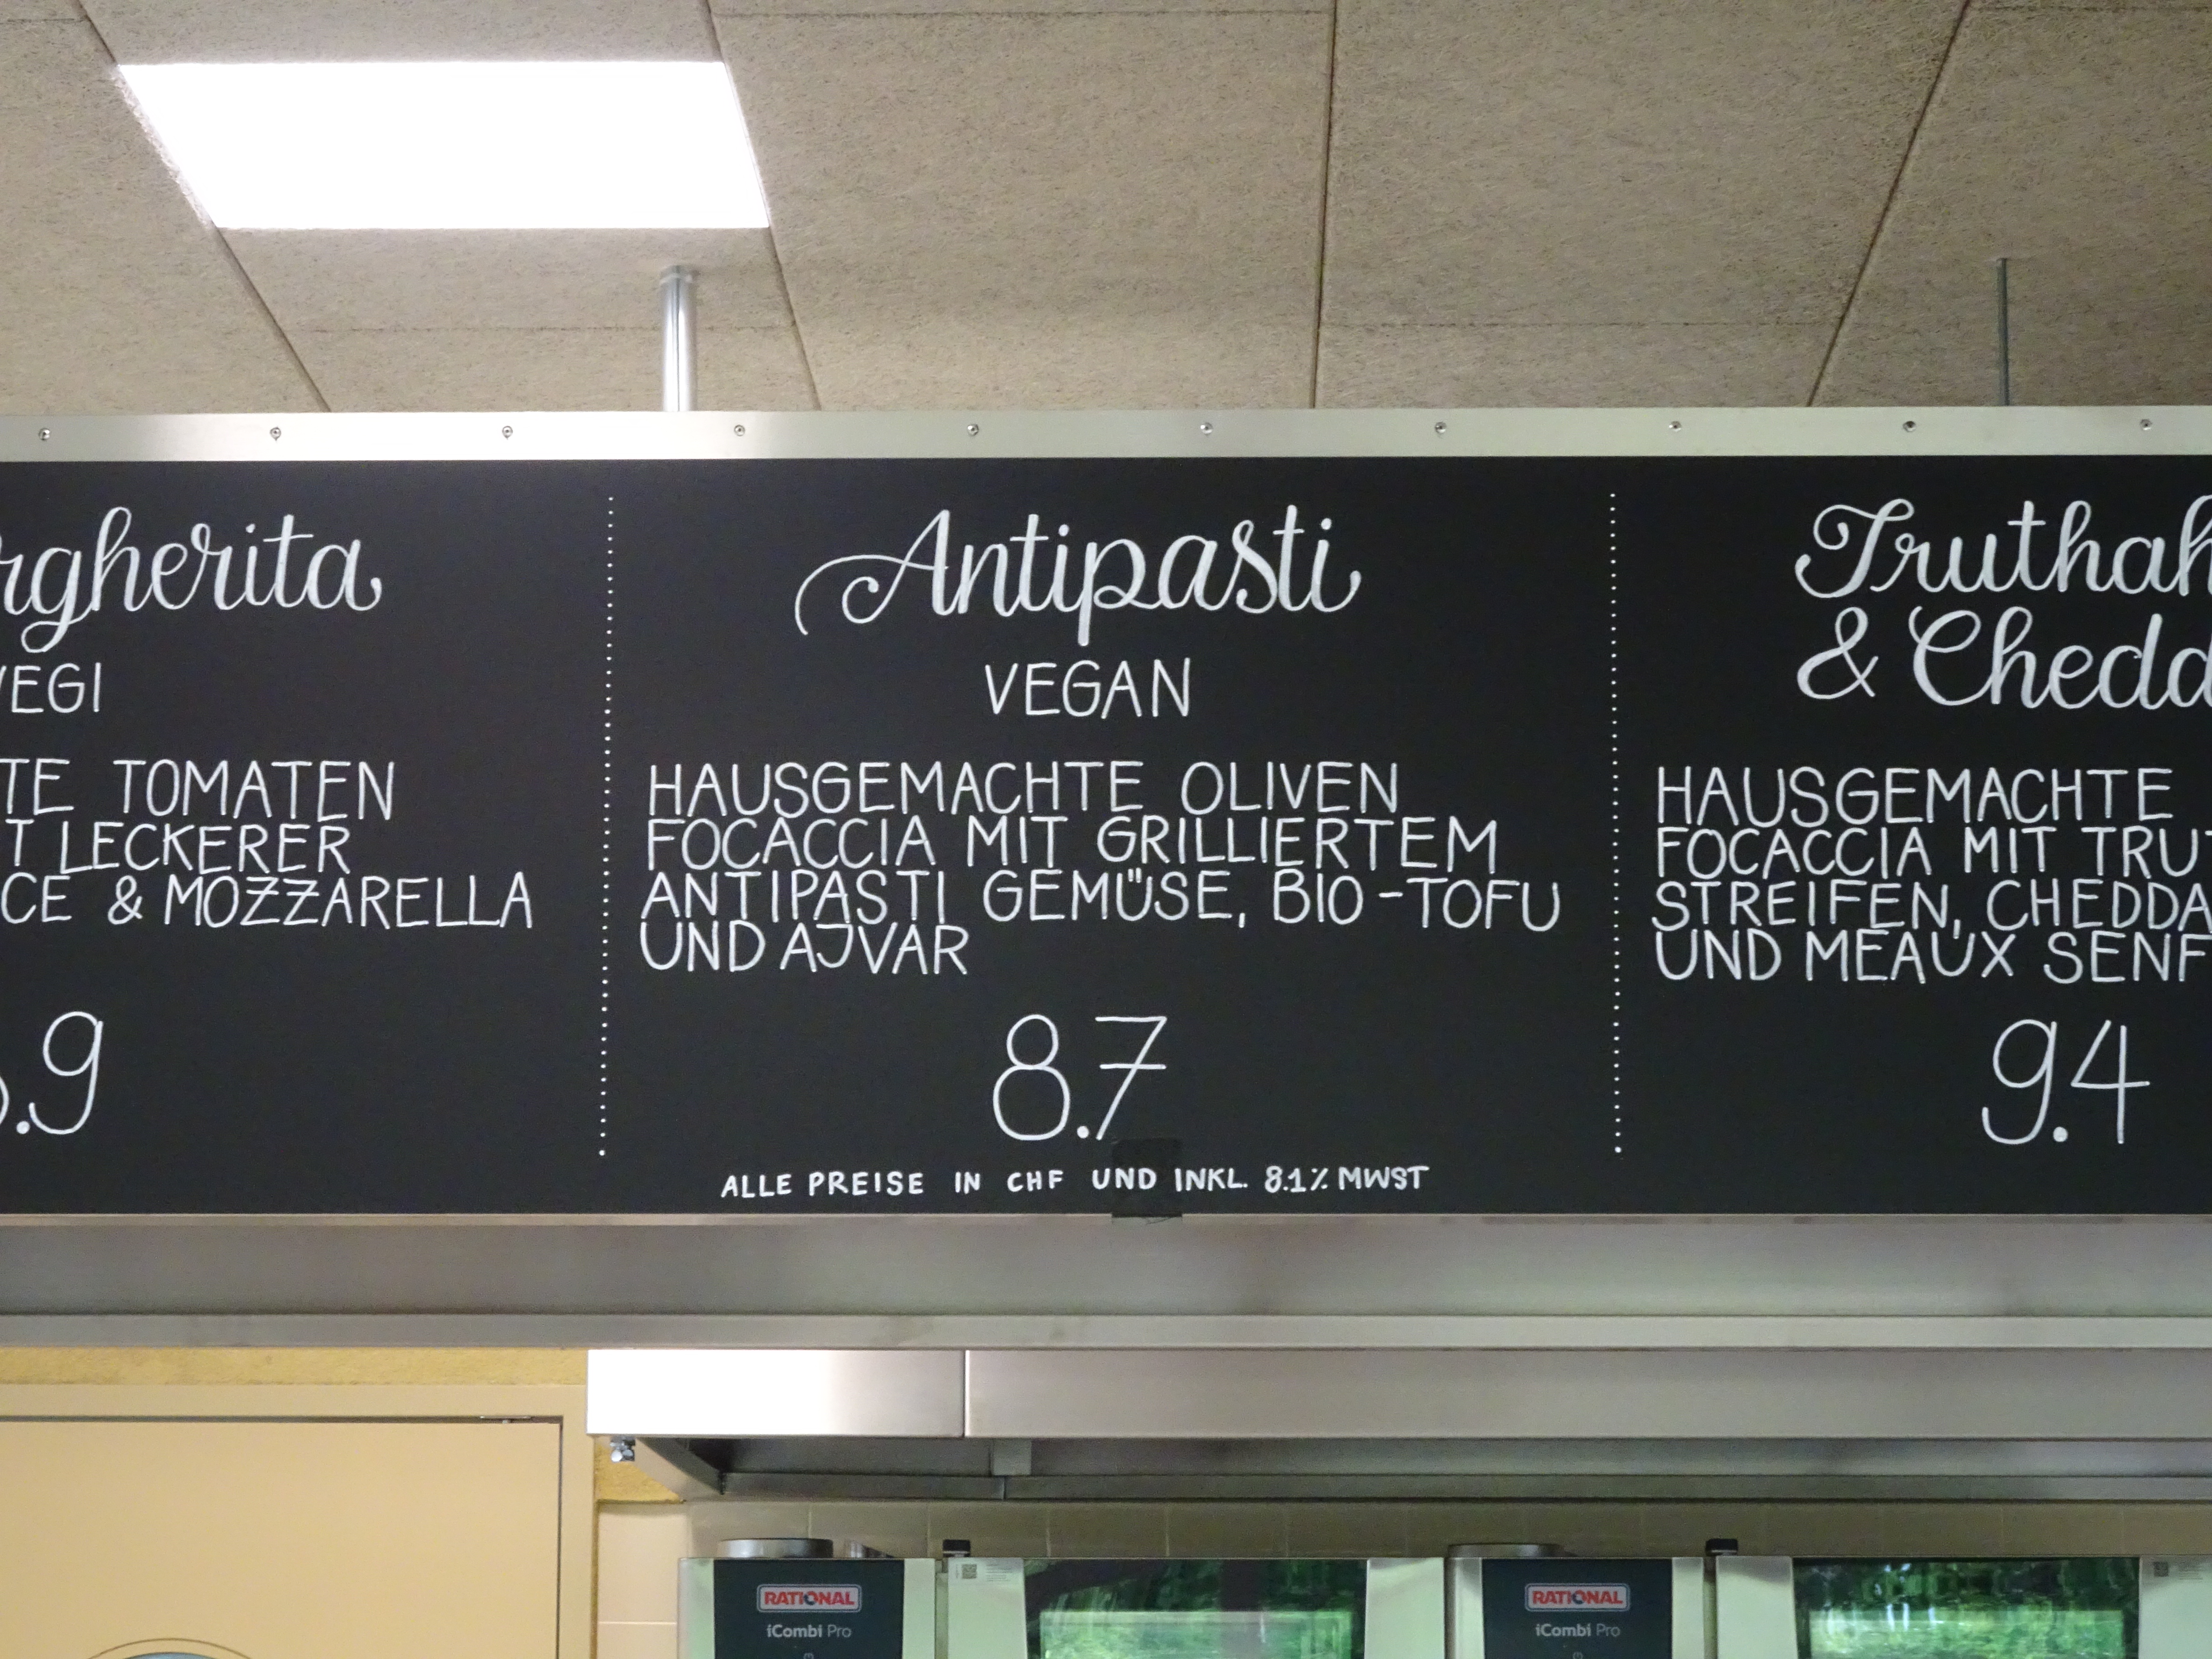 rgherita
VEGI
TE TOMATEN
T LECKERER
CE & MOZZARELLA
.9
Antipasti
VEGAN
HAUSGEMACHTE OLIVEN
FOCACCIA MIT GRILLIERTEM
ANTIPASTI GEMÜSE, BIO-TOFU
UND AJVAR
8.7
ALLE PREISE IN CHF UND INKL. 8.1% MWST
Truthah
& Chedd
HAUSGEMACHTE
FOCACCIA MIT TRUT
STREIFEN, CHEDDA
UND MEAUX SENF
9.4
RATIONAL
iCombi Pro
RATIONAL
iCombi Pro